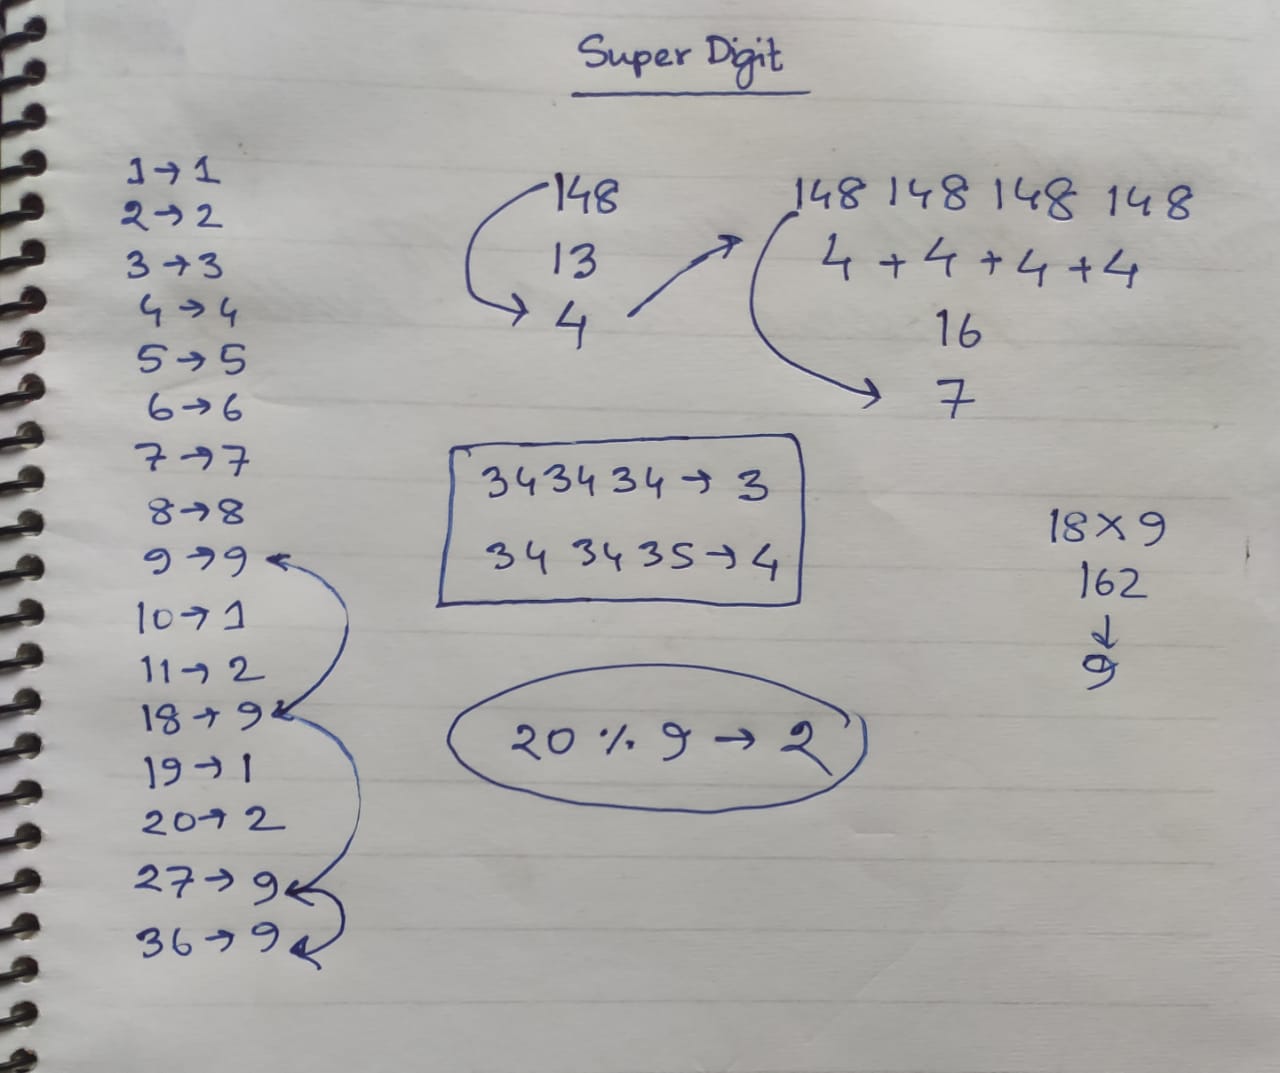 Super Digit
1 → 1
2 → 2
3 → 3
4 → 4
5 → 5
6 → 6
7 → 7
8 → 8
9 → 9
10 → 1
11 → 2
18 → 9
19 → 1
20 → 2
27 → 9
36 → 9
148
13
4
148 148 148 148
4 + 4 + 4 + 4
16
7
34 34 34 → 3
34 34 35 → 4
20 % 9 → 2
18 × 9
162
↓
9